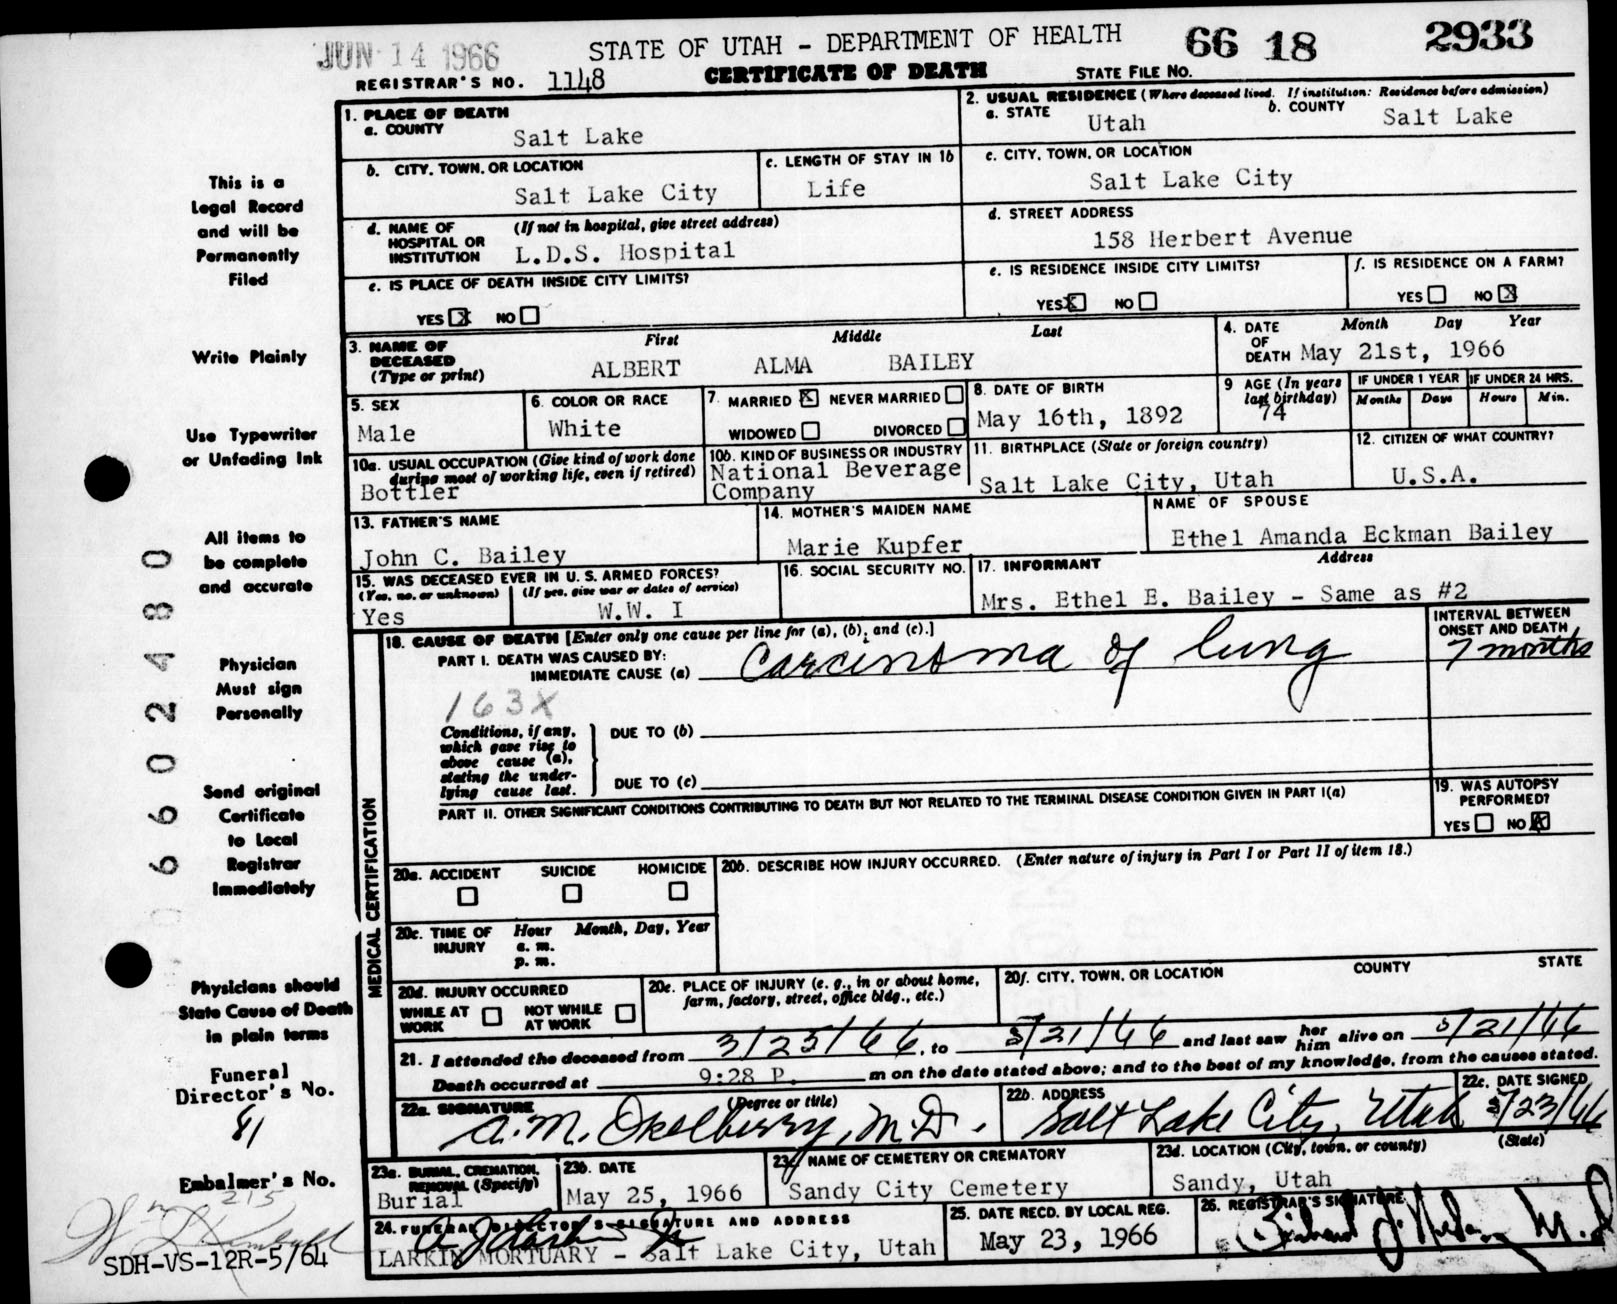 JUN 14 1966
STATE OF UTAH - DEPARTMENT OF HEALTH
66 18 2933
REGISTRAR'S NO. 1148
CERTIFICATE OF DEATH
STATE FILE NO.
1. PLACE OF DEATH
a. COUNTY
Salt Lake
2. USUAL RESIDENCE (Where deceased lived. If institution: Residence before admission)
a. STATE
Utah
b. COUNTY
Salt Lake
b. CITY, TOWN, OR LOCATION
Salt Lake City
c. LENGTH OF STAY IN 1b
Life
c. CITY, TOWN, OR LOCATION
Salt Lake City
d. NAME OF HOSPITAL OR INSTITUTION
(If not in hospital, give street address)
L.D.S. Hospital
d. STREET ADDRESS
158 Herbert Avenue
e. IS PLACE OF DEATH INSIDE CITY LIMITS?
YES X NO
e. IS RESIDENCE INSIDE CITY LIMITS?
YES X NO
f. IS RESIDENCE ON A FARM?
YES NO X
3. NAME OF DECEASED
(Type or print)
First Middle Last
ALBERT ALMA BAILEY
4. DATE OF DEATH
Month Day Year
May 21st, 1966
5. SEX
Male
6. COLOR OR RACE
White
7. MARRIED X NEVER MARRIED
WIDOWED DIVORCED
8. DATE OF BIRTH
May 16th, 1892
9 AGE (In years last birthday)
74
IF UNDER 1 YEAR
Months Days
IF UNDER 24 HRS.
Hours Min.
10a. USUAL OCCUPATION (Give kind of work done during most of working life, even if retired)
Bottler
10b. KIND OF BUSINESS OR INDUSTRY
National Beverage Company
11. BIRTHPLACE (State or foreign country)
Salt Lake City, Utah
12. CITIZEN OF WHAT COUNTRY?
U.S.A.
13. FATHER'S NAME
John C. Bailey
14. MOTHER'S MAIDEN NAME
Marie Kupfer
NAME OF SPOUSE
Ethel Amanda Eckman Bailey
15. WAS DECEASED EVER IN U. S. ARMED FORCES?
(Yes, no, or unknown) (If yes, give war or dates of service)
Yes W.W. I
16. SOCIAL SECURITY NO.
17. INFORMANT Address
Mrs. Ethel E. Bailey - Same as #2
MEDICAL CERTIFICATION
18. CAUSE OF DEATH [Enter only one cause per line for (a), (b), and (c).]
PART I. DEATH WAS CAUSED BY:
IMMEDIATE CAUSE (a) Carcinoma of lung
INTERVAL BETWEEN ONSET AND DEATH
7 months
163X
Conditions, if any, which gave rise to above cause (a), stating the underlying cause last.
DUE TO (b)
DUE TO (c)
PART II. OTHER SIGNIFICANT CONDITIONS CONTRIBUTING TO DEATH BUT NOT RELATED TO THE TERMINAL DISEASE CONDITION GIVEN IN PART I(a)
19. WAS AUTOPSY PERFORMED?
YES NO X
20a. ACCIDENT SUICIDE HOMICIDE
20b. DESCRIBE HOW INJURY OCCURRED. (Enter nature of injury in Part I or Part II of item 18.)
20c. TIME OF INJURY
Hour Month, Day, Year
a. m.
p. m.
20d. INJURY OCCURRED
WHILE AT WORK NOT WHILE AT WORK
20e. PLACE OF INJURY (e. g., in or about home, farm, factory, street, office bldg., etc.)
20f. CITY, TOWN, OR LOCATION COUNTY STATE
21. I attended the deceased from 3/25/66, to 5/21/66 and last saw her him alive on 5/21/66
Death occurred at 9:28 P. m on the date stated above; and to the best of my knowledge, from the causes stated.
22a. SIGNATURE (Degree or title)
A.M. Okelberry, M.D.
22b. ADDRESS
Salt Lake City, Utah
22c. DATE SIGNED
5/23/66
23a. BURIAL, CREMATION, REMOVAL (Specify)
Burial
23b. DATE
May 25, 1966
23c NAME OF CEMETERY OR CREMATORY
Sandy City Cemetery
23d. LOCATION (City, town, or county) (State)
Sandy, Utah
24. FUNERAL DIRECTOR'S SIGNATURE AND ADDRESS
LARKIN MORTUARY - Salt Lake City, Utah
25. DATE RECD. BY LOCAL REG.
May 23, 1966
26. REGISTRAR'S SIGNATURE
This is a
Legal Record
and will be
Permanently
Filed
Write Plainly
Use Typewriter
or Unfading Ink
All items to
be complete
and accurate
Physician
Must sign
Personally
Send original
Certificate
to Local
Registrar
Immediately
Physicians should
State Cause of Death
in plain terms
Funeral
Director's No.
81
Embalmer's No.
215
SDH-VS-12R-5/64
6 6 0 2 4 8 0